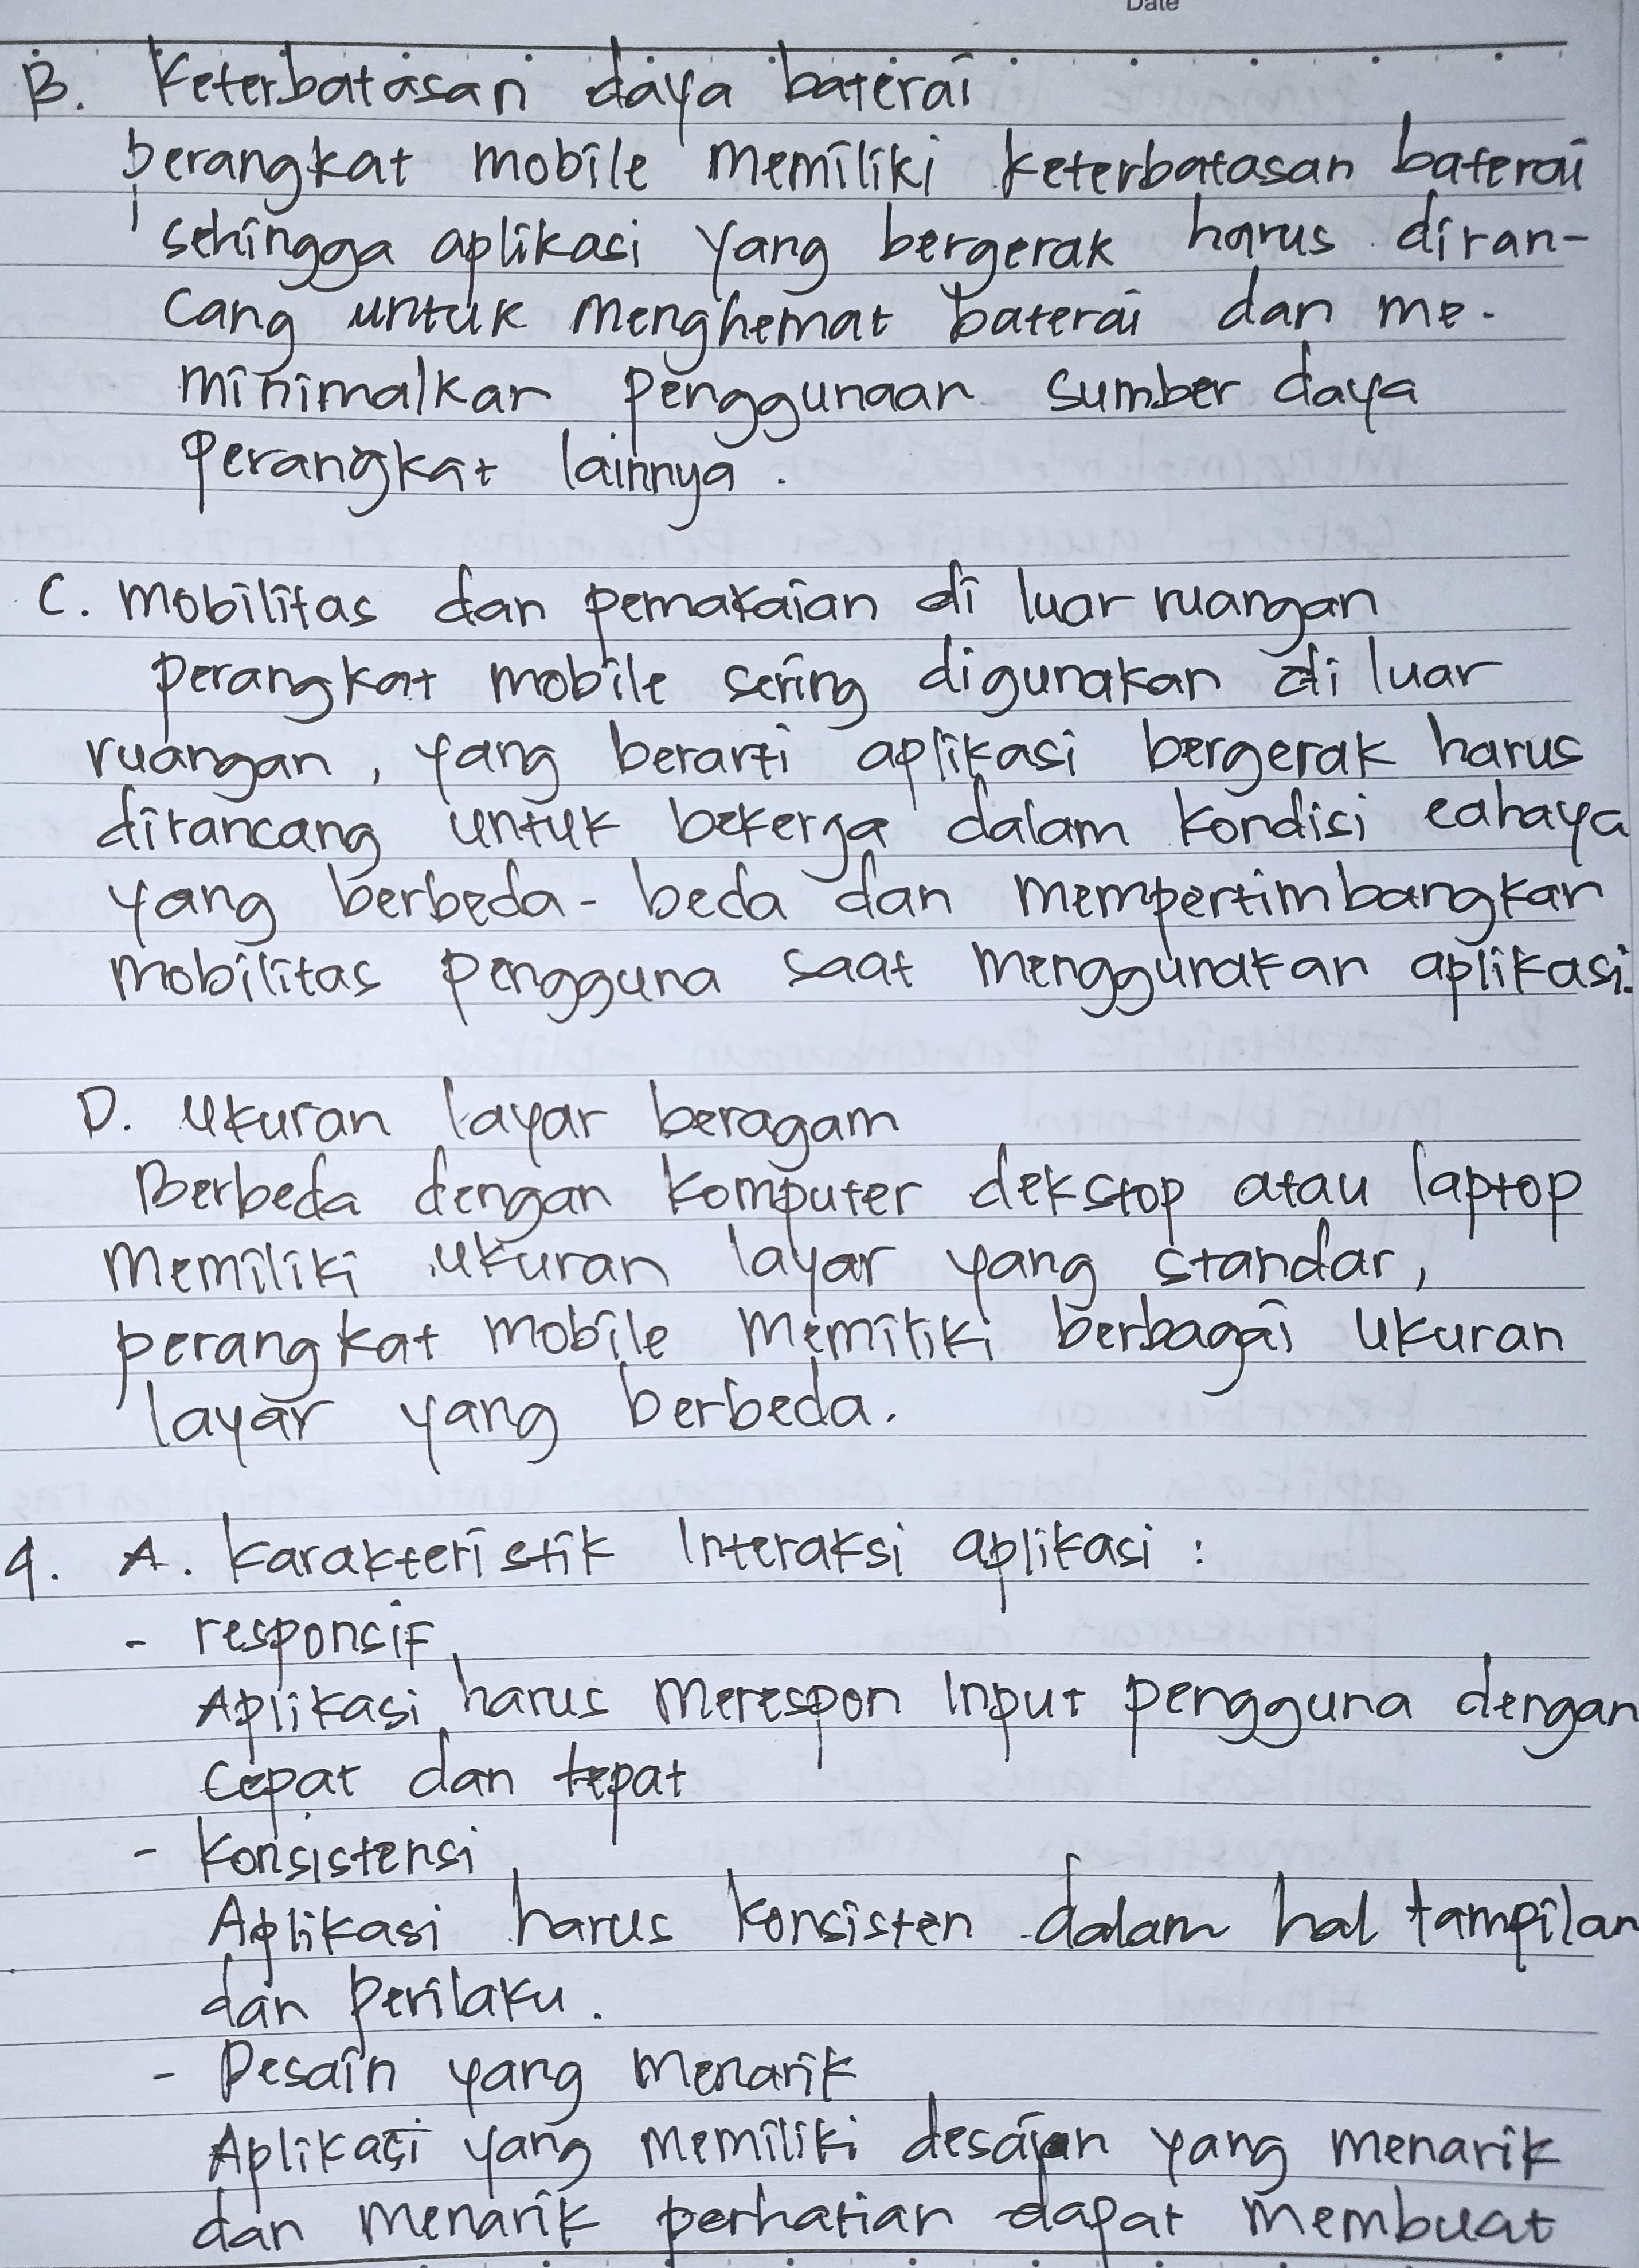 Date
B. Keterbatasan daya baterai
perangkat mobile memiliki keterbatasan baterai
sehingga aplikasi yang bergerak harus diran-
cang untuk menghemat baterai dan me-
minimalkan penggunaan sumber daya
perangkat lainnya.
C. mobilitas dan pemakaian di luar ruangan
perangkat mobile sering digunakan di luar
ruangan, yang berarti aplikasi bergerak harus
dirancang untuk bekerja dalam kondisi cahaya
yang berbeda-beda dan mempertimbangkan
mobilitas pengguna saat menggunakan aplikasi.
D. Ukuran layar beragam
Berbeda dengan komputer dekstop atau laptop
memiliki ukuran layar yang standar,
perangkat mobile memiliki berbagai ukuran
layar yang berbeda.
4. A. Karakteristik Interaksi aplikasi :
- responsif
Aplikasi harus merespon Input pengguna dengan
cepat dan tepat
- Konsistensi
Aplikasi harus konsisten dalam hal tampilan
dan perilaku.
- Desain yang menarik
Aplikasi yang memiliki desain yang menarik
dan menarik perhatian dapat membuat